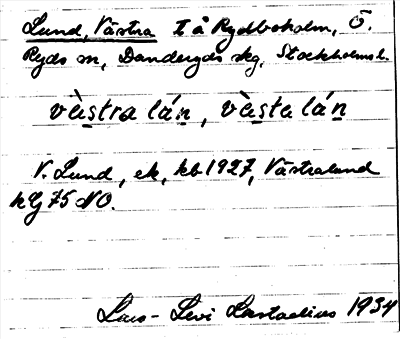 Lund, Västra t å Rydboholm, Ö.
Ryds sn, Danderyds skg, Stockholms l.
vä̀stra lán, vä̀sta lán
V. Lund, ek, kb 1927, Västralund
hg 75 NO.
Lars-Levi Læstadius 1934